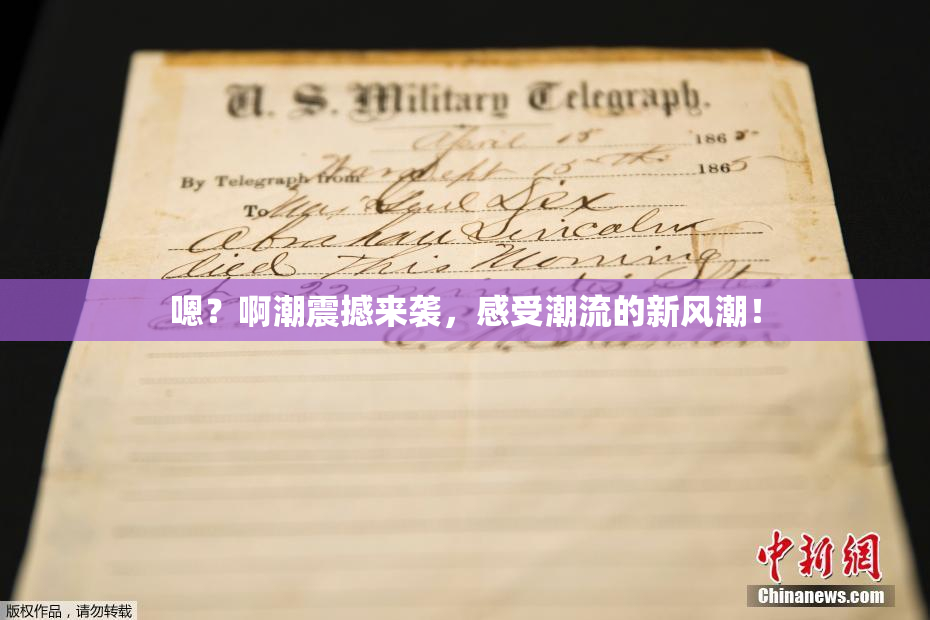 U. S. Military Telegraph.
April 15 1865
By Telegraph from War Dept 15th 1865
To Maj Genl Dix
Abraham Lincoln
died This Morning
at 22 minutes after
嗯？啊潮震撼来袭，感受潮流的新风潮！
E. M. Stanton
中新网
Chinanews.com
版权作品，请勿转载